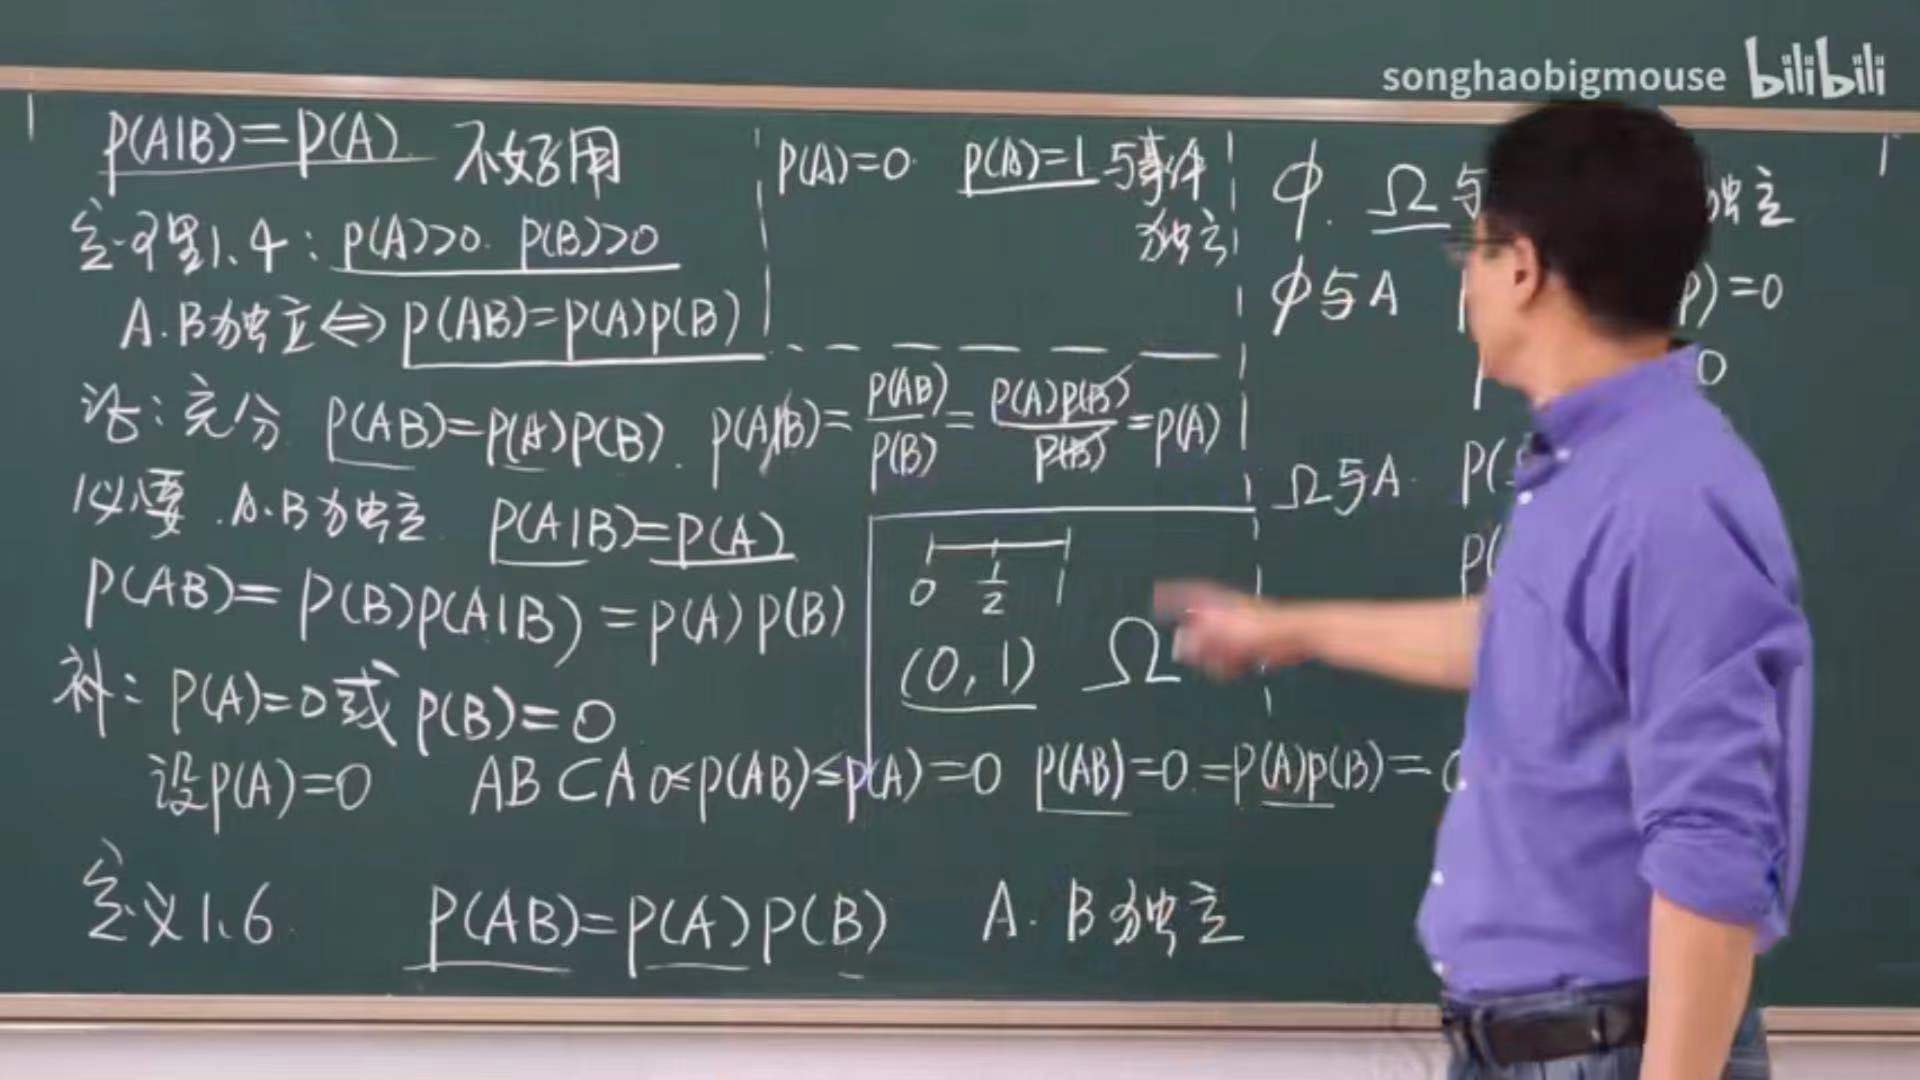 songhaobigmouse bilibili
P(A|B)=P(A) 不好用
定理1.4: P(A)>0. P(B)>0
A.B独立⇔P(AB)=P(A)P(B)
证:充分 P(AB)=P(A)P(B). P(A|B)=P(AB)/P(B)=P(A)P(B)/P(B)=P(A)
必要.A.B独立 P(A|B)=P(A)
P(AB)=P(B)P(A|B)=P(A)P(B)
补: P(A)=0或P(B)=0
设P(A)=0 AB⊂A 0≤P(AB)≤P(A)=0 P(AB)=0=P(A)P(B)=0
定义1.6 P(AB)=P(A)P(B) A.B独立
P(A)=0 P(A)=1与事件
独立
0 1/2 1
(0,1) Ω
φ.Ω与 独立
φ与A )=0
0
Ω与A. P(
P(